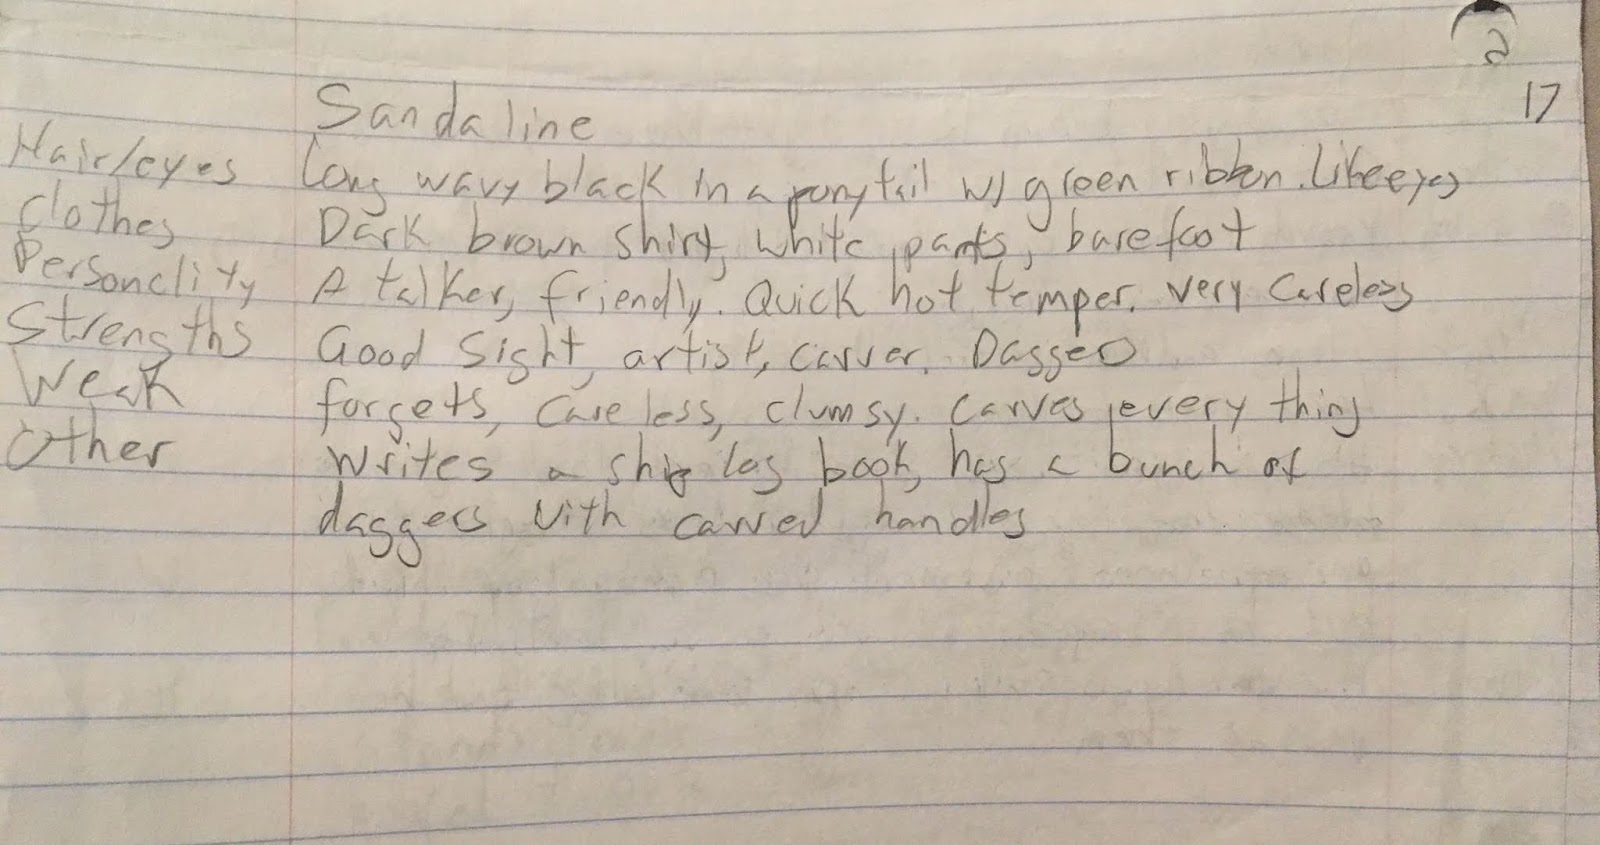 2
17
Sandaline
Hair/eyes Long wavy black in a ponytail w/ green ribbon. Like eyes
Clothes Dark brown shirt, white pants, barefoot
Personality A talker, friendly. Quick hot temper. Very careless
Strengths Good sight, artist, carver. Dagger
Weak forgets, careless, clumsy. Carves every thing
Other Writes a ship log book, has a bunch of
daggers with carved handles